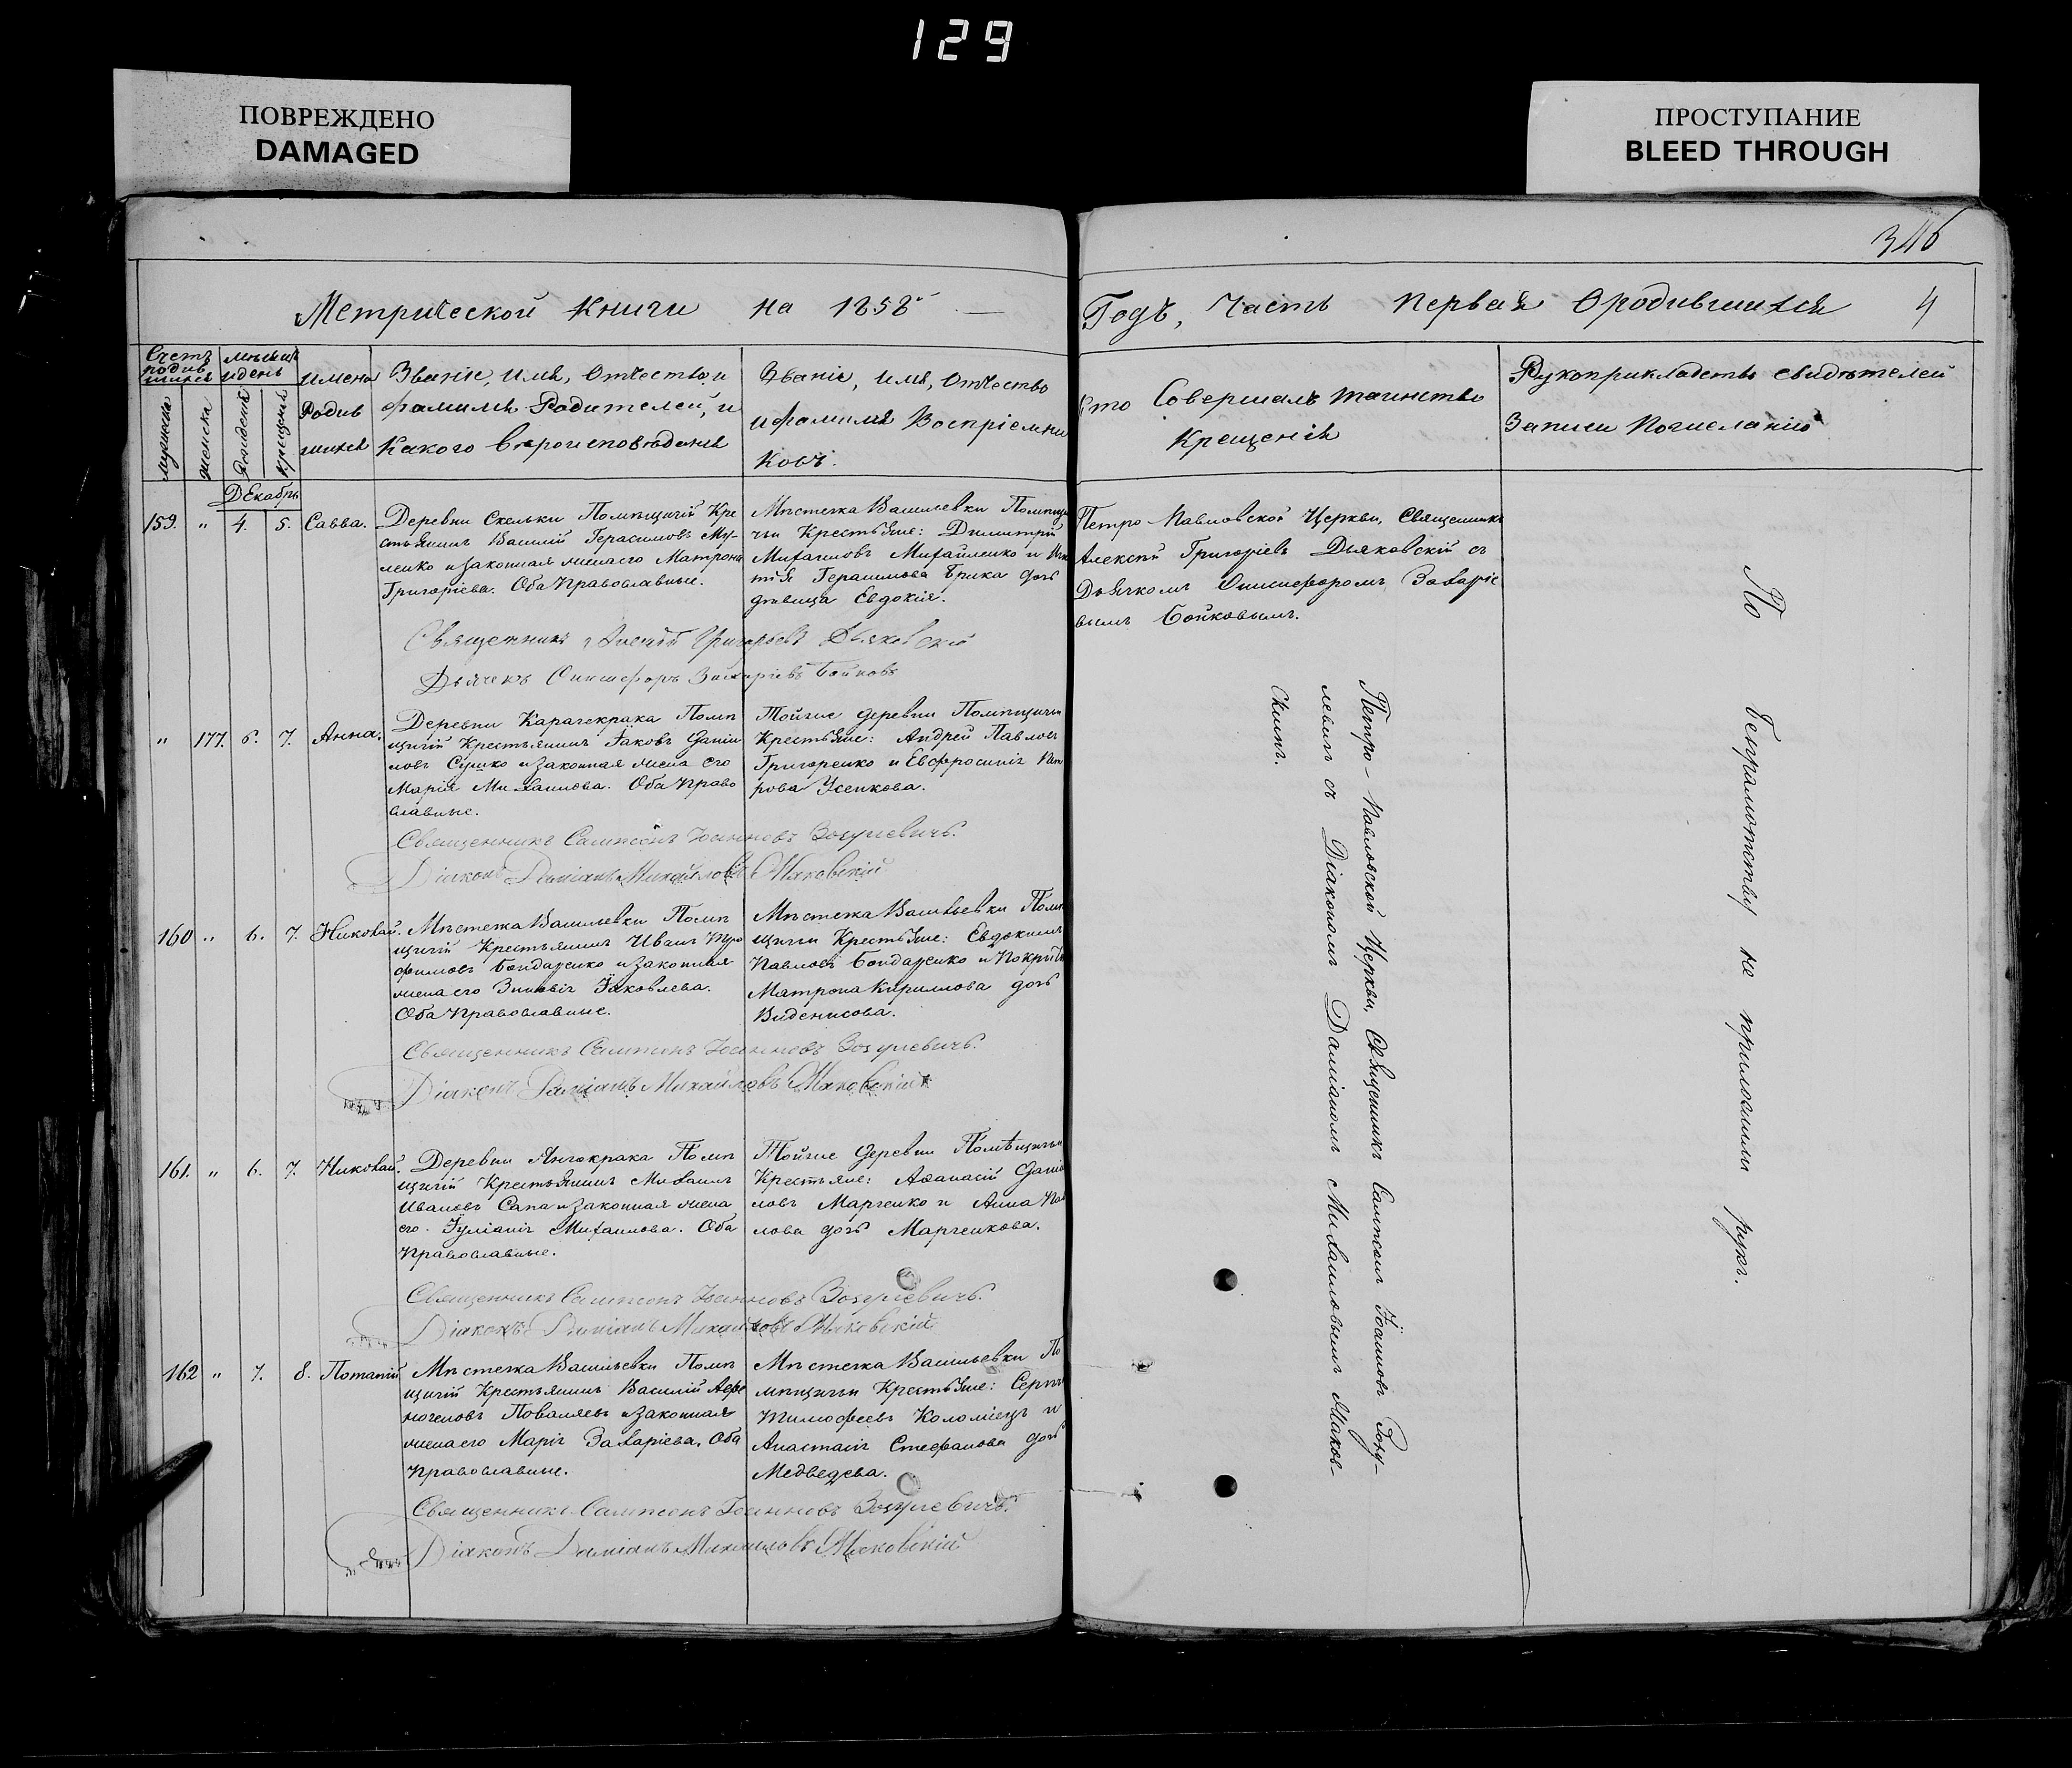 129
ПОВРЕЖДЕНО
DAMAGED
ПРОСТУПАНИЕ
BLEED THROUGH
346
Метрической Книги на 1858й
Годъ, Часть первая Ородившихся 4
Счетъ родившихся
мужеска
женска
мѣсяцъ и день
рожденія
крещенія
имена
Родив
шихся
Званіе, имя, отчество, и
фамилія Родителей, и
Какого вѣроисповѣданія
Званіе, имя, отчество
и фамилія Воспріемни
ковъ.
Кто Совершалъ таинство
Крещенія
Рукоприкладство свидѣтелей
Записи По желанію
Декабрь
159. " 4. 5. Савва.
Деревни Скельки Помѣщичій Кре
стьянинъ Василій Герасимовъ Му-
ленко и законная жена его Матрона
Григоріева. Оба Православные.
Мѣстечка Васильевки Помѣщи
чьи Крестьяне: Димитрій
Михаиловъ Михайленко и
Герасимова Брика дочь
дѣвица Евдокія.
Петро-Павловской Церкви, Священникъ
Алексѣй Григоріевъ Дьяковскій съ
Дьячкомъ Онисифоромъ Захаріе
вымъ Бойковымъ.
Священникъ Алексѣй Григоріевъ Дьяковскій
Дьячекъ Онисифоръ Захаріевъ Бойковъ
" 177. 6. 7. Анна.
Деревни Карачекрака Помѣ
щичій Крестьянинъ Іаковъ Даніи
ловъ Сушко и законная жена его
Марія Михаилова. Оба Право
славные.
Тойже деревни Помѣщичьи
Крестьяне: Андрей Павловъ
Григоренко и Евфросинія Пет
рова Усенкова.
Священникъ Сампсонъ Іоанновъ Возулевичъ.
Діаконъ Даміанъ Михайловъ Маковскій
160 " 6. 7. Николай.
Мѣстечка Васильевки Помѣ
щичій Крестьянинъ Иванъ Тро
фимовъ Бондаренко и законная
жена его Зиновія Іаковлева.
Оба Православные.
Мѣстечка Васильевки Помѣ
щичьи Крестьяне: Евдокимъ
Павловъ Бондаренко и
Матрона Кириллова дочь
Виденисова.
Священникъ Сампсонъ Іоанновъ Возулевичъ.
Діаконъ Даміанъ Михайловъ Маковскій
161. " 6. 7. Николай.
Деревни Янчокрака Помѣ
щичій Крестьянинъ Михаилъ
Ивановъ Сапа и законная жена
его Іуліанія Михаилова. Оба
Православные.
Тойже деревни Помѣщичьи
Крестьяне: Аѳанасій Даніи
ловъ Марченко и Анна Пав
лова дочь Марченкова.
Священникъ Сампсонъ Іоанновъ Возулевичъ.
Діаконъ Даміанъ Михайловъ Маковскій
162 " 7. 8. Потапій
Мѣстечка Васильевки Помѣ
щичій Крестьянинъ Василій Афе
ногеновъ Поваляевъ и законная
жена его Марія Захаріева. Оба
Православные.
Мѣстечка Васильевки По
мѣщичьи Крестьяне: Сергѣй
Тимофеевъ Коломіецъ и
Анастасія Стефанова дочь
Медведева.
Священникъ Сампсонъ Іоанновъ Возулевичъ.
Діаконъ Даміанъ Михайловъ Маковскій
Петро-Павловской Церкви, Священникъ Сампсонъ Іоанновъ Возу-
левичъ съ Діакономъ Даміаномъ Михаиловымъ Маков-
скимъ.
По безграмотству не приложили рукъ.